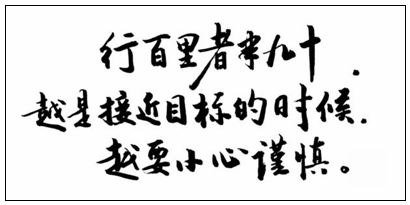 行百里者半九十.
越是接近目标的时候.
越要小心谨慎。